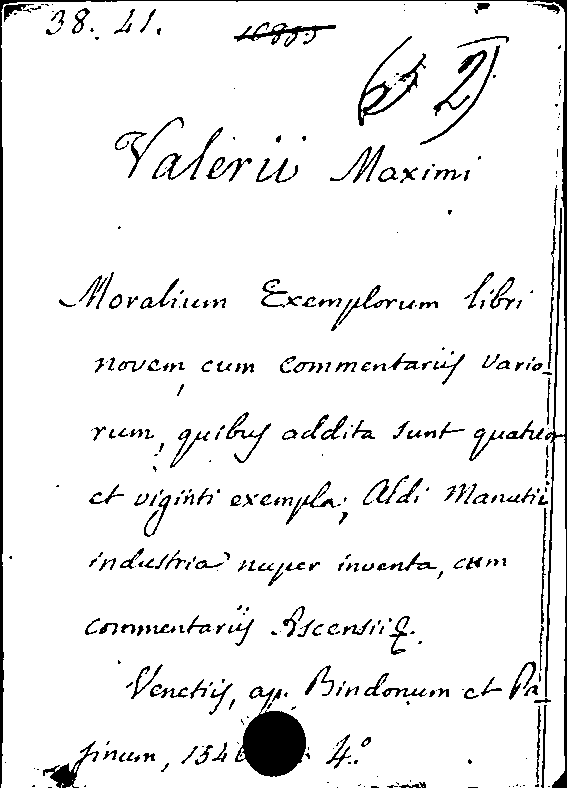 38. 41. 16805
(52)
Valerii Maximi
Moralium Exemplorum libri
novem, cum commentariis vario-
rum, quibus addita sunt quatuor
et viginti exempla; Aldi Manutii
industria nuper inventa, cum
commentariis Ascensii &.
Venetiis, ap. Bindonum et Pa-
sinum, 1546 4.º